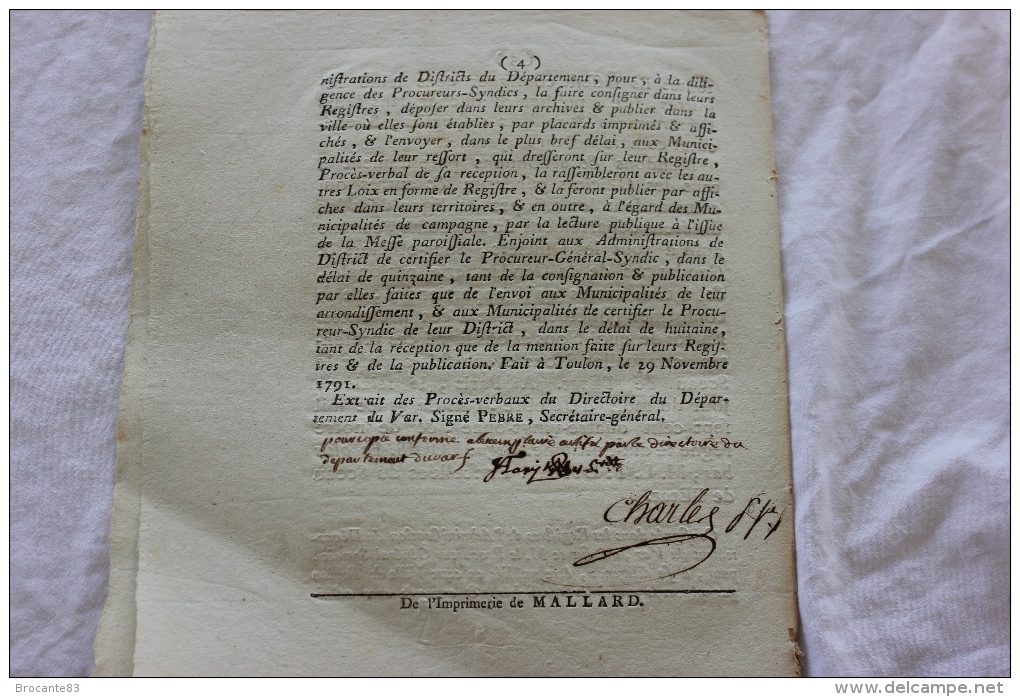 ( 4 )
nistrations de Districts du Département, pour, à la dili-
gence des Procureurs-Syndics, la faire consigner dans leurs
Registres, déposer dans leurs archives & publier dans la
ville où elles sont établies, par placards imprimés & affi-
chés, & l'envoyer, dans le plus bref délai, aux Munici-
palités de leur ressort, qui dresseront sur leur Registre,
Procès-verbal de sa reception, la rassembleront avec les au-
tres Loix en forme de Registre, & la feront publier par affi-
ches dans leurs territoires, & en outre, à l'égard des Mu-
nicipalités de campagne, par la lecture publique à l'issue
de la Messe paroissiale. Enjoint aux Administrations de
District de certifier le Procureur-Général-Syndic, dans le
délai de quinzaine, tant de la consignation & publication
par elles faites que de l'envoi aux Municipalités de leur
arrondissement, & aux Municipalités de certifier le Procu-
reur-Syndic de leur District, dans le délai de huitaine,
tant de la réception que de la mention faite sur leurs Regis-
tres & de la publication. Fait à Toulon, le 29 Novembre
1791.
Extrait des Procès-verbaux du Directoire du Dépar-
tement du Var. Signé PEBRE, Secrétaire-général.
pour copie conforme a lexemplaire par le directoire du
departement du var
Charles
De l'Imprimerie de MALLARD.
Brocante83
www.delcampe.net